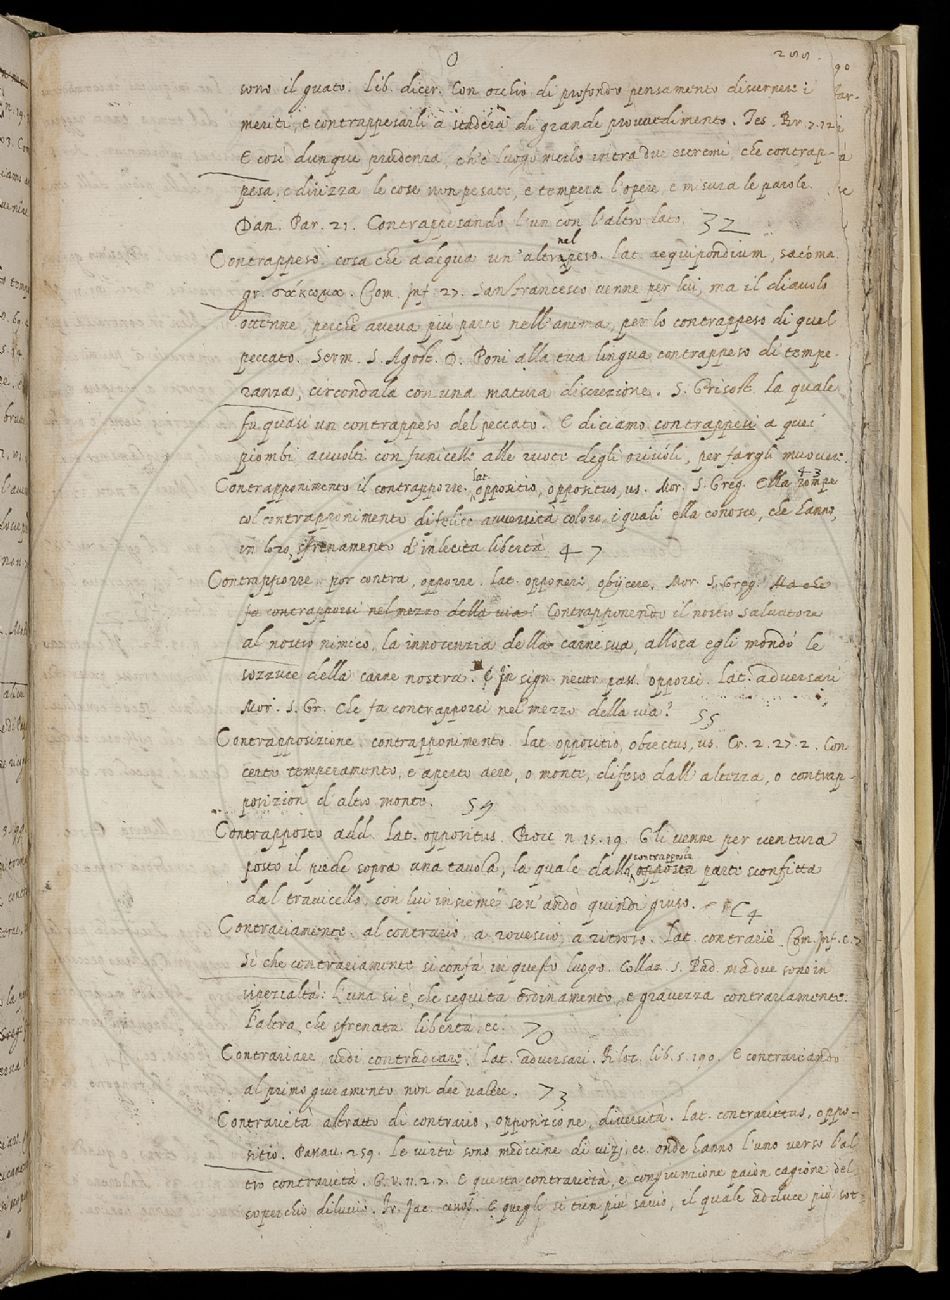 O 255.
sono il guato. Lib. dicer. Con occhio di profondo pensamento discernere i
meriti, e contrappesarli a stadera di grande provvedimento. Tes. Br. 7. 12
E così dunque prudenza, ch'è luogo medo intra due estremi, che contrap-
pesa, e dirizza le cose non pesate, e tempera l'opere, e misura le parole.
Dan. Par. 21. Contrappesando l'un con l'altro lato. 32
Contrappeso. cosa che adegua un'altra nel peso. Lat. aequipondium, sacoma.
gr. σάκωμα. Com. Inf. 27. San Francesco venne per lui, ma il diavolo
ottenne, perchè aveva più parte nell'anima, per lo contrappeso di quel
peccato. Serm. S. Agost. D. Poni alla tua lingua contrappeso di tempe-
ranza, circondala con una matura discrezione. S. Grisost. La quale
fu quasi un contrappeso del peccato. E diciamo contrappesi a quei
piombi avvolti con funicelle alle ruote degli oriuoli, per fargli muovere. 43
Contrapponimento il contrapporre. lat. oppositio, oppositus, us. Mor. S. Greg. Ella rompe
col contrapponimento di felice avversità coloro, i quali ella conosce, che hanno,
in loro, sfrenamento d'inlecita libertà 47
Contrapporre. por contra, opporre. Lat. opponere, obijcere. Mor. S. Greg. Ma che
fa contrapporsi nel mezzo della via? Contrapponendo il nostro Salvatore
al nostro nimico, la innocenzia della carne sua, allora egli mondò le
sozzure della carne nostra. In sign. neutr. pass. opporsi. Lat. adversari
Mor. S. Gr. Che fa contrapporsi nel mezzo della via? 55
Contrapposizione contrapponimento. Lat. oppositio, obiectus, us. Cr. 2. 27. 2. Con
certo temperamento, e aperto aere, o monte, difeso dall'altezza, o contrap-
posizion d'altro monte. 59
Contrapposto add. Lat. oppositus. Bocc. n. 15. 19. Gli venne per ventura
posto il piede sopra una tavola, la quale dalla contrapposta opposita parte sconfitta
dal travicello, con lui insieme se n'andò quindi giuso. C4
Contrariamente. al contrario, a rovescio, a ritroso. Lat. contrarie. Com. Inf. c. 7
Si che contrariamente si confà in questo luogo. Collaz. S. Pad. ma due sono in
ispezialtà: L'una si è, che seguita ordinamento, e gravezza contrariamente.
l'altra, che sfrenata libertà, ec. 70
Contrariare, vedi contradiare. Lat. adversari. Filoc. lib. 5. 190. E contrariando
al primo giuramento non dee valere. 73
Contrarietà astratto di contrario, opposizione, diversità. Lat. contrarietas, oppo-
sitio. Passav. 259. Le virtù sono medicine di vizj, ec. onde hanno l'uno verso l'al-
tro contrarietà. G. V. 11. 2. 7. E questa contrarietà, e congiunzione paion cagione del
soperchio diluvio. Fr. Jac. Cess. E quegli si tien più savio, il quale adduce più sot